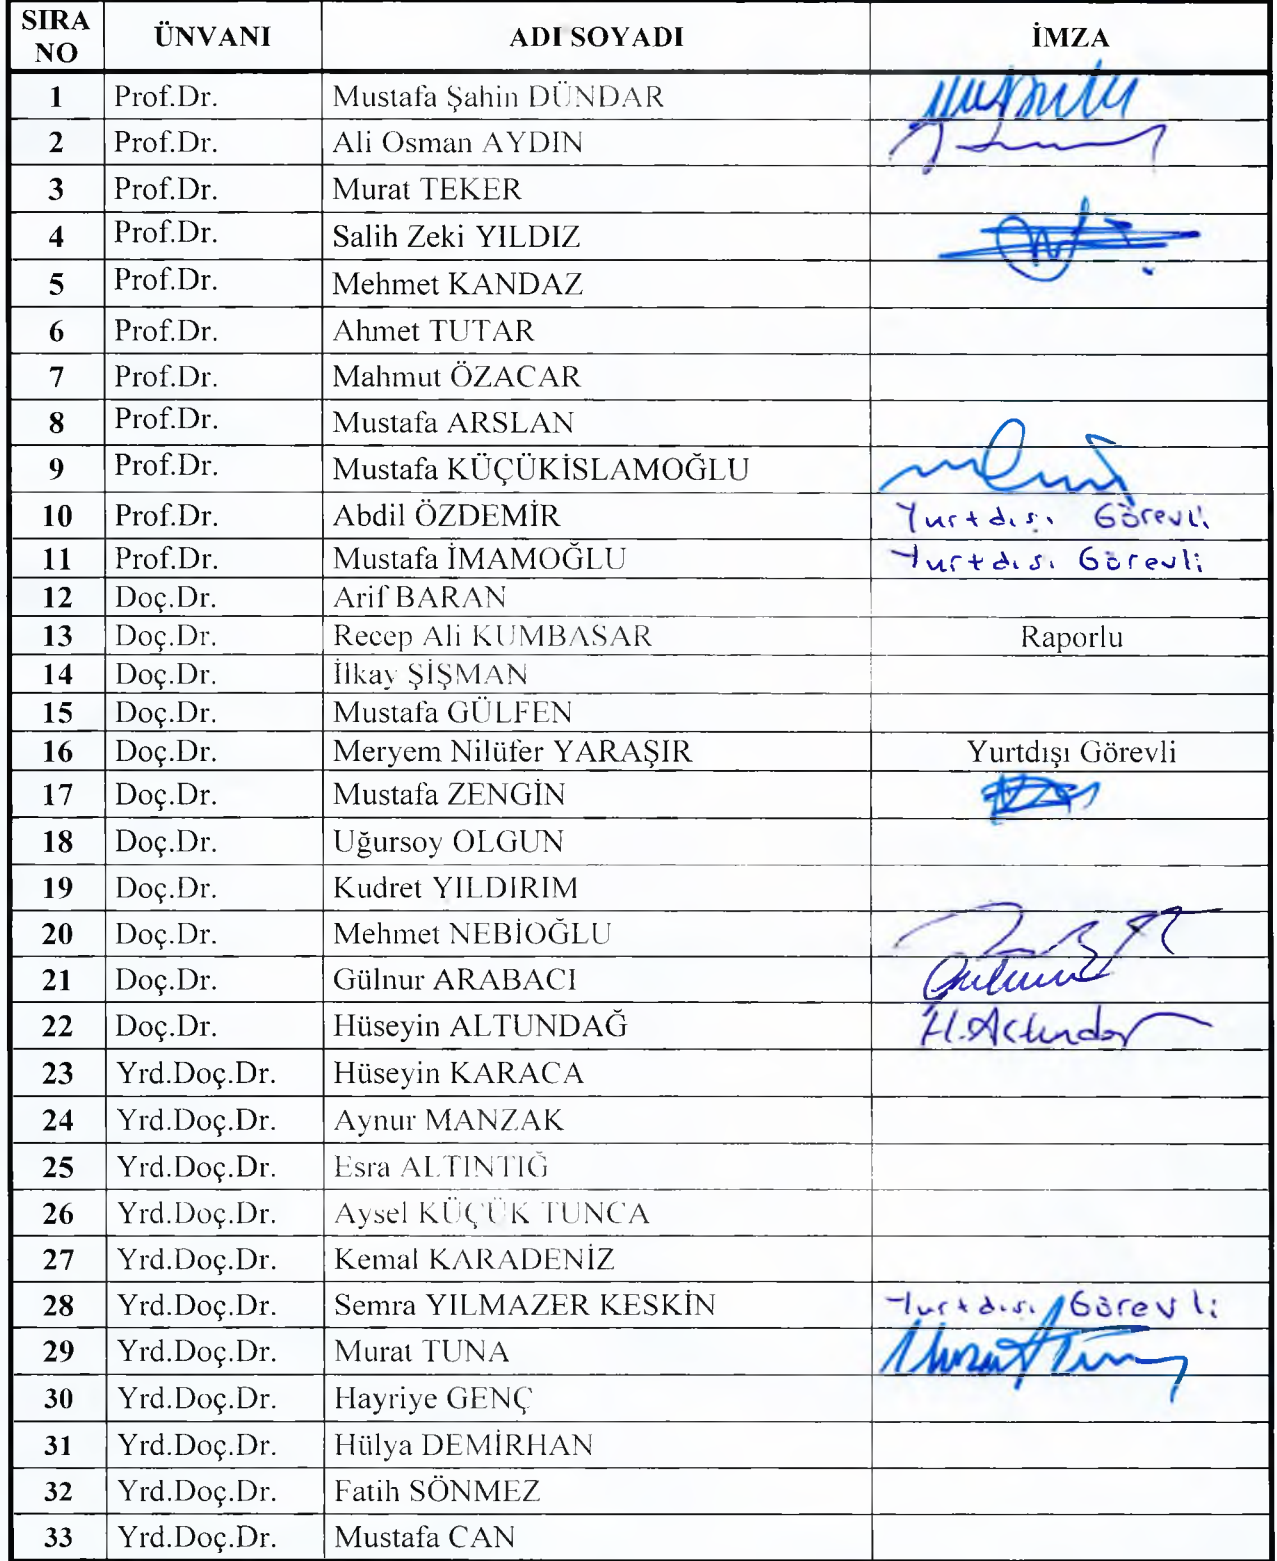 SIRA NO ÜNVANI ADI SOYADI İMZA
1 Prof.Dr. Mustafa Şahin DÜNDAR
2 Prof.Dr. Ali Osman AYDIN
3 Prof.Dr. Murat TEKER
4 Prof.Dr. Salih Zeki YILDIZ
5 Prof.Dr. Mehmet KANDAZ
6 Prof.Dr. Ahmet TUTAR
7 Prof.Dr. Mahmut ÖZACAR
8 Prof.Dr. Mustafa ARSLAN
9 Prof.Dr. Mustafa KÜÇÜKİSLAMOĞLU
10 Prof.Dr. Abdil ÖZDEMİR Yurtdışı Görevli
11 Prof.Dr. Mustafa İMAMOĞLU Yurtdışı Görevli
12 Doç.Dr. Arif BARAN
13 Doç.Dr. Recep Ali KUMBASAR Raporlu
14 Doç.Dr. İlkay ŞİŞMAN
15 Doç.Dr. Mustafa GÜLFEN
16 Doç.Dr. Meryem Nilüfer YARAŞIR Yurtdışı Görevli
17 Doç.Dr. Mustafa ZENGİN
18 Doç.Dr. Uğursoy OLGUN
19 Doç.Dr. Kudret YILDIRIM
20 Doç.Dr. Mehmet NEBİOĞLU
21 Doç.Dr. Gülnur ARABACI
22 Doç.Dr. Hüseyin ALTUNDAĞ H.Altındağ
23 Yrd.Doç.Dr. Hüseyin KARACA
24 Yrd.Doç.Dr. Aynur MANZAK
25 Yrd.Doç.Dr. Esra ALTINTIĞ
26 Yrd.Doç.Dr. Aysel KÜÇÜK TUNCA
27 Yrd.Doç.Dr. Kemal KARADENİZ
28 Yrd.Doç.Dr. Semra YILMAZER KESKİN Yurtdışı Görevli
29 Yrd.Doç.Dr. Murat TUNA
30 Yrd.Doç.Dr. Hayriye GENÇ
31 Yrd.Doç.Dr. Hülya DEMİRHAN
32 Yrd.Doç.Dr. Fatih SÖNMEZ
33 Yrd.Doç.Dr. Mustafa CAN